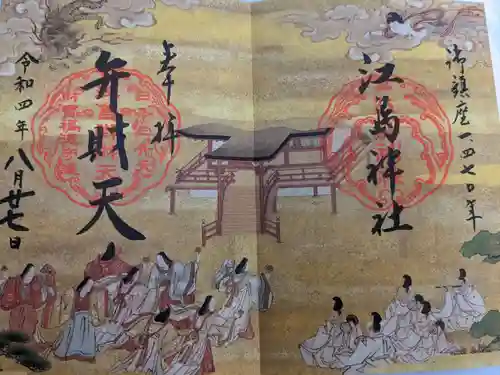 御鎮座一四七〇年
江島神社
奉拝
弁財天
令和四年
八月廿七日